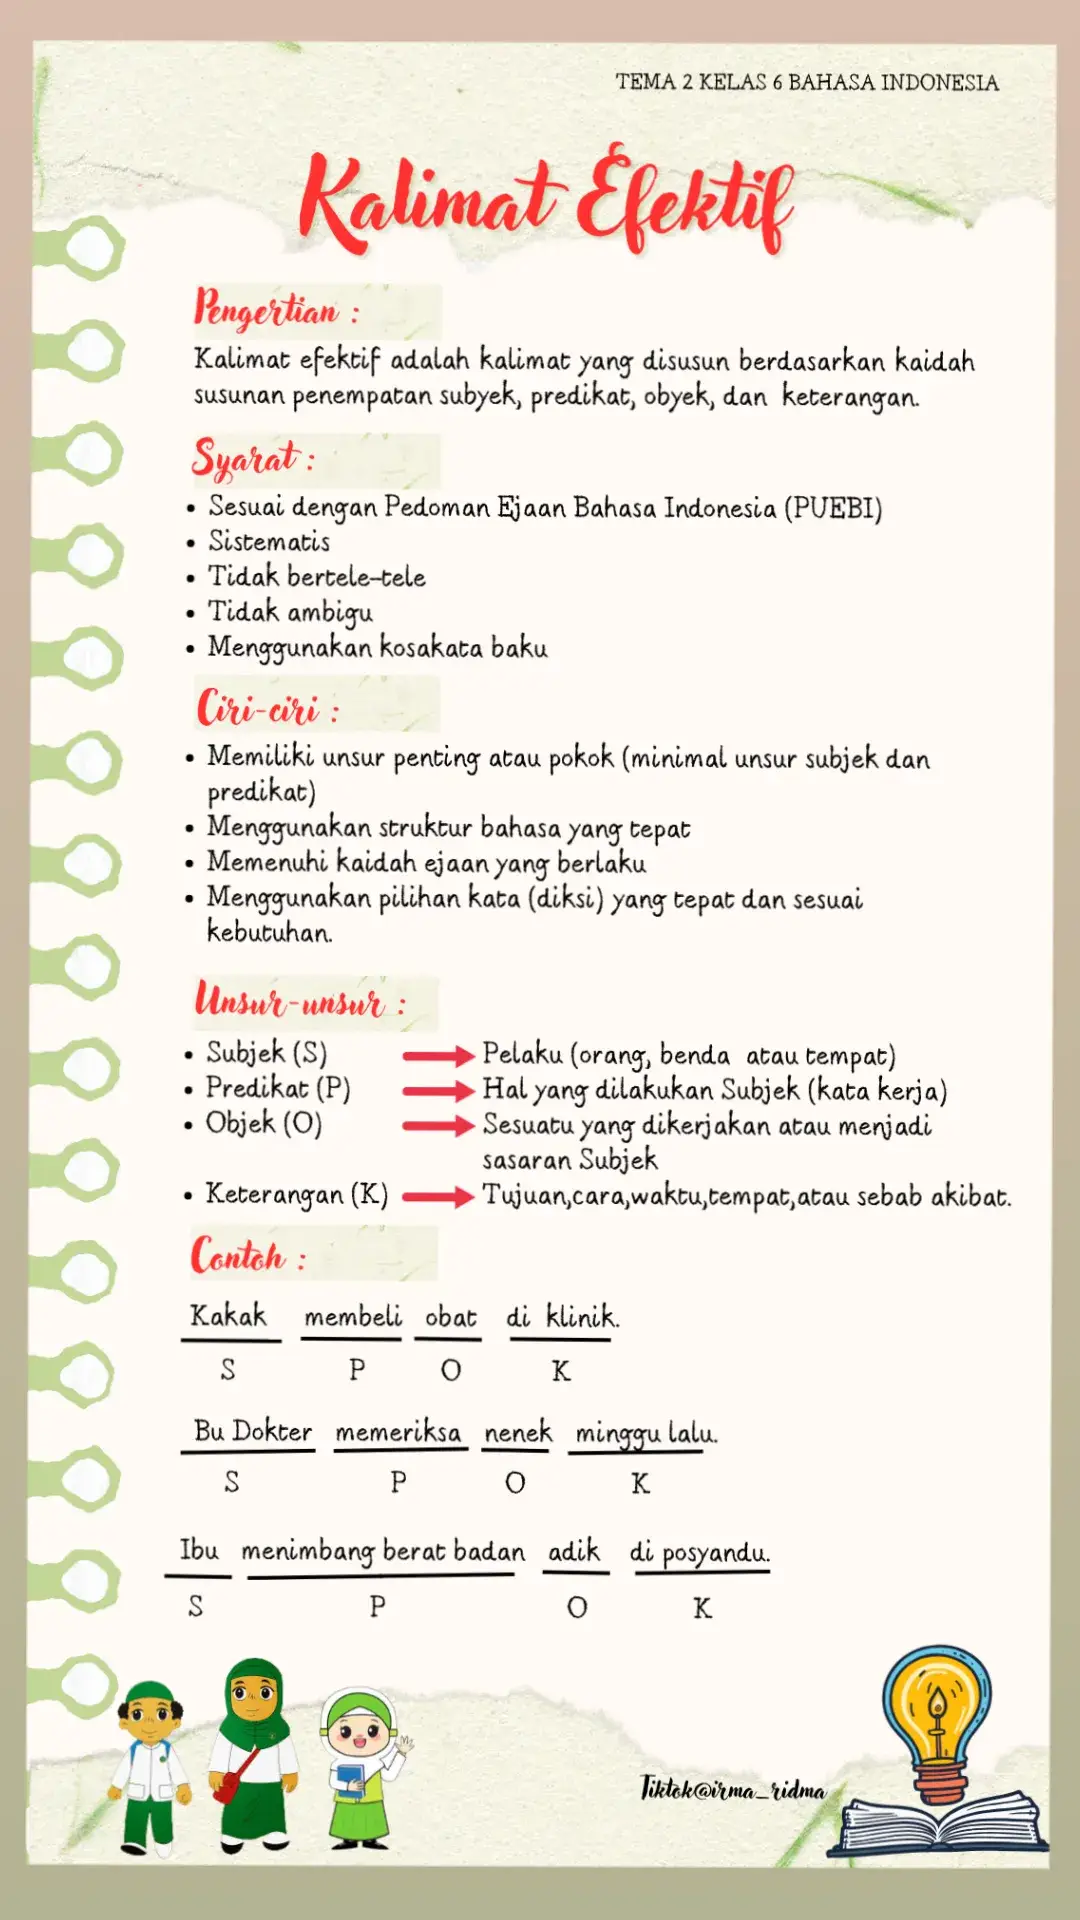 TEMA 2 KELAS 6 BAHASA INDONESIA
Kalimat Efektif
Pengertian :
Kalimat efektif adalah kalimat yang disusun berdasarkan kaidah
susunan penempatan subyek, predikat, obyek, dan keterangan.
Syarat :
• Sesuai dengan Pedoman Ejaan Bahasa Indonesia (PUEBI)
• Sistematis
• Tidak bertele-tele
• Tidak ambigu
• Menggunakan kosakata baku
Ciri-ciri :
• Memiliki unsur penting atau pokok (minimal unsur subjek dan
predikat)
• Menggunakan struktur bahasa yang tepat
• Memenuhi kaidah ejaan yang berlaku
• Menggunakan pilihan kata (diksi) yang tepat dan sesuai
kebutuhan.
Unsur-unsur :
• Subjek (S) Pelaku (orang, benda atau tempat)
• Predikat (P) Hal yang dilakukan Subjek (kata kerja)
• Objek (O) Sesuatu yang dikerjakan atau menjadi
sasaran Subjek
• Keterangan (K) Tujuan,cara,waktu,tempat,atau sebab akibat.
Contoh :
Kakak membeli obat di klinik.
S P O K
Bu Dokter memeriksa nenek minggu lalu.
S P O K
Ibu menimbang berat badan adik di posyandu.
S P O K
Tiktok@irma_ridma